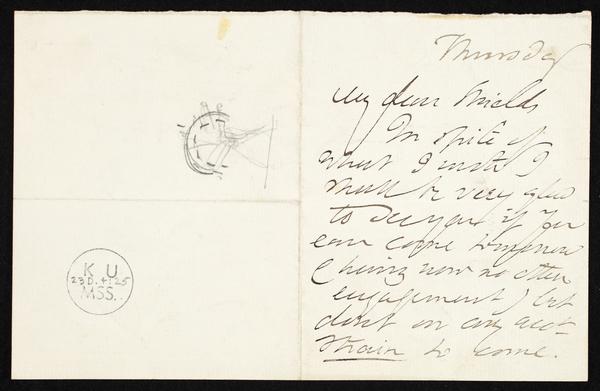 Thursday
My dear Shields
In spite of
what I wrote I
shall be very glad
to see you if you
can come tomorrow
(having now no other
engagement) but
don't on any acct
strain to come.
K U
23D.4:25
MSS.